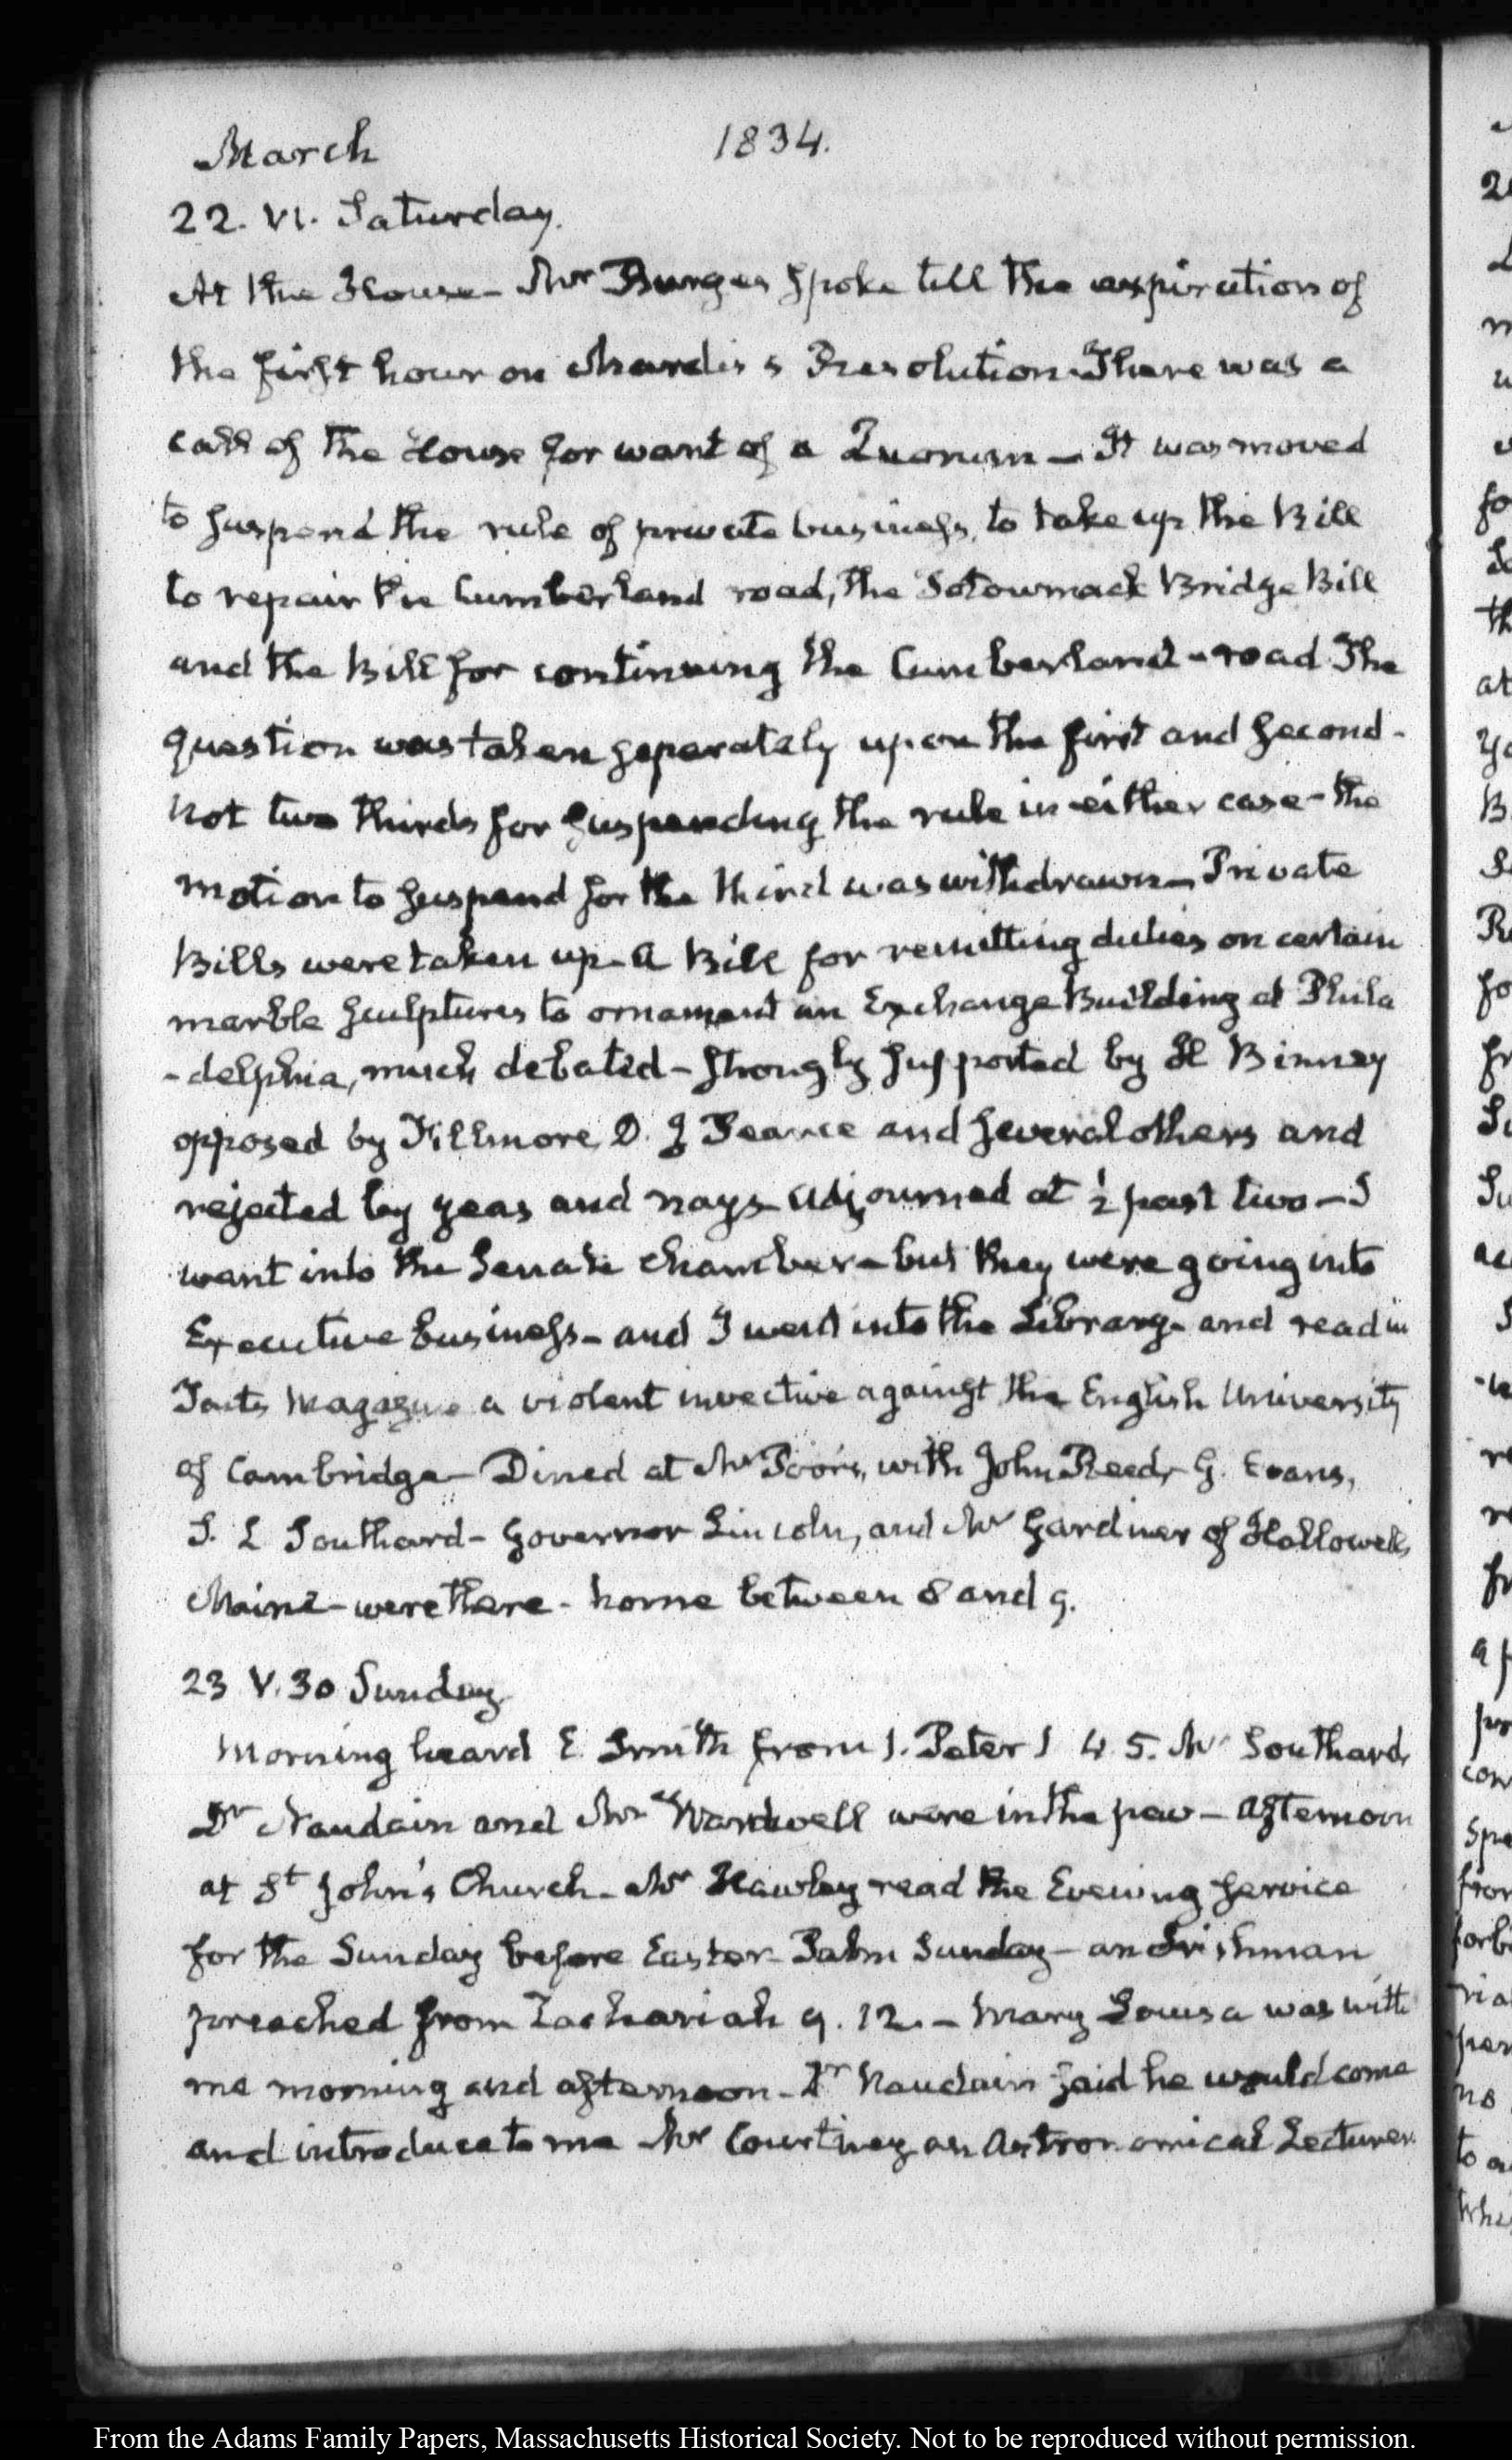 March 1834.
22. VI. Saturday.
At the House – Mr Burges spoke till the expiration of
the first hour on Mardis's Resolution. There was a
call of the House for want of a Quorum – It was moved
to suspend the rule of private business, to take up the Bill
to repair the Cumberland road, the Potowmack Bridge Bill
and the Bill for continuing the Cumberland-road The
question was taken separately upon the first and second -
not two thirds for suspending the rule in either case - the
motion to suspend for the third was withdrawn – Private
Bills were taken up - A Bill for remitting duties on certain
marble sculptures to ornament an Exchange Building at Phila
-delphia, much debated - strongly supported by H Binney
opposed by Fillmore, D. J Pearce and several others and
rejected by yeas and nays - adjourned at ½ past two – I
went into the Senate chamber - but they were going into
Executive business - and I went into the Library - and read in
Taits Magazine a violent invective against the English University
of Cambridge – Dined at Mr Poor's, with John Reed, G. Evans,
S. L Southard - Governor Lincoln, and Mr Gardiner of Hallowell,
Maine - were there - home between 8 and 9.
23 V. 30 Sunday
Morning heard E. Smith from 1. Peter 1 4. 5. Mr Southard,
Dr Naudain and Mr Wardwell were in the pew – afternoon
at St John's Church - Mr Hawley read the Evening service
for the Sunday before Easter - Palm Sunday – an Irishman
preached from Zachariah 9. 12. – Mary Louisa was with
me morning and afternoon - Dr Naudain said he would come
and introduce to me Mr Courtney an Astronomical Lecturer.
From the Adams Family Papers, Massachusetts Historical Society. Not to be reproduced without permission.